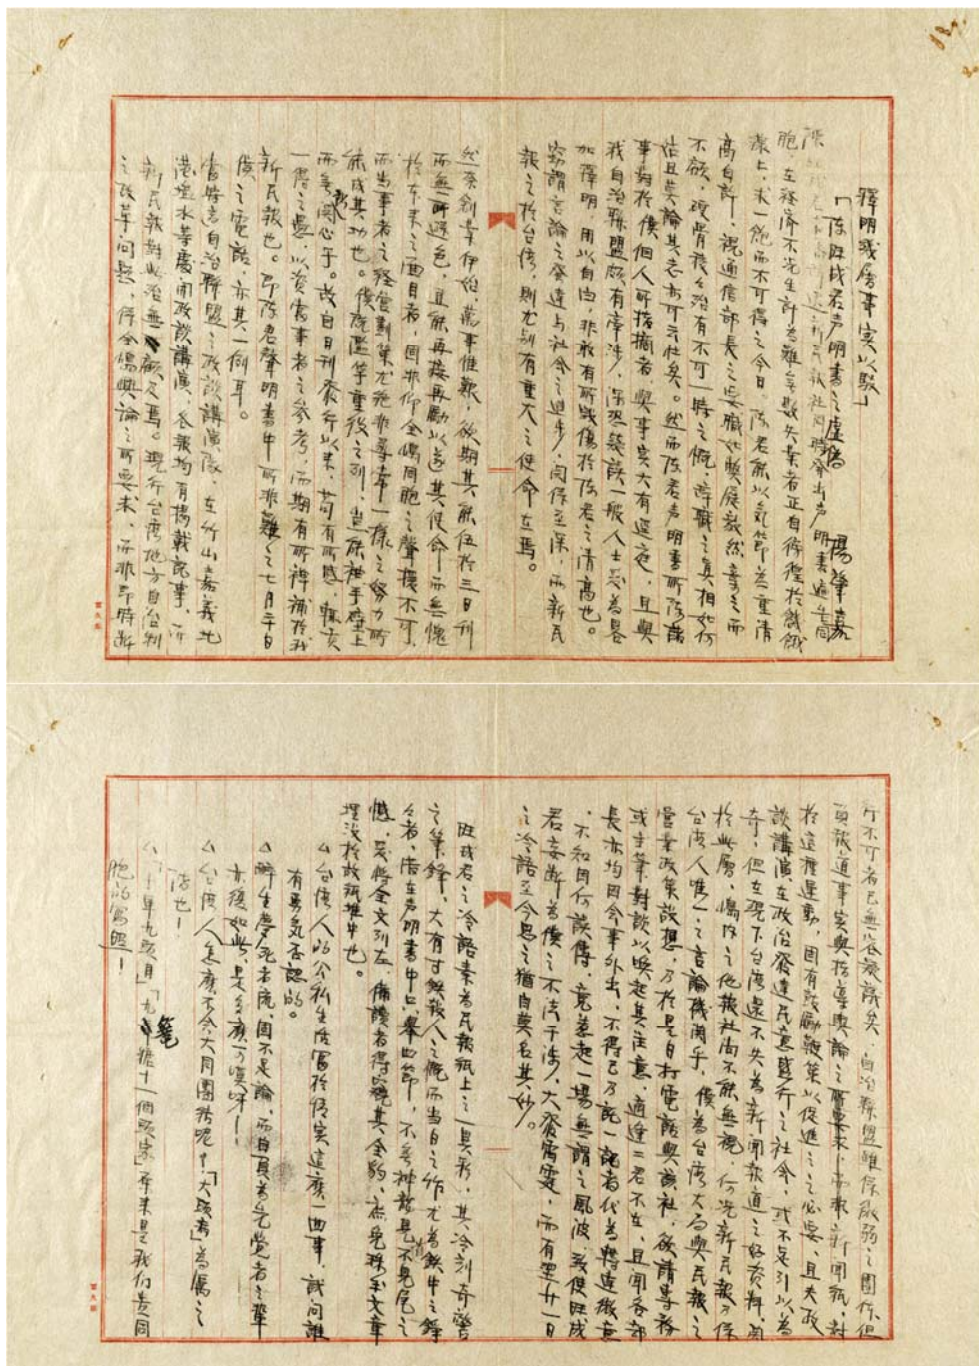 釋明幾層事實以駁
「陳旺成君声明書」之虛偽　楊肇嘉
胞，在經濟不先生計為難多數失業者正自徬徨於飢餓
線上，求一飽而不可得之今日，陳君能以氣節為重清
高自許，視通信部長之要職如獎屣毅然棄之而
不顧，硬骨稜々洵有不可一時之慨，辞職之真相如何
姑且莫論其志亦可云壯矣。然而陳君声明書所陳諸
事對於僕個人所指摘者，與事實大有逕庭，且與
我自治聯盟頗有牽涉，深恐疑誤一般人士受為畧
加釋明，用以自白，非敢有所毀傷於陳君之清高也。
竊謂言論之發達与社会之進步，関係至深，而新民
報之於台湾，則尤別有重大之使命在焉。
然系創業伊始，萬事惟艱，欲期其能伍於三日刊
而無所遜色，且能再接再勵以遂其使命而無愧
於本來之面目者，固非仰全島同胞之聲援不可，
而當事者之經營劃策尤非尋常一樣之努力所
能成其功也。僕既濫竽董役之列，豈能袖手壁上
而無関心乎。故自日刊發行以來，苟有所感，輒效
一得之愚，以資當事者之參考，而期有所裨補於我
新民報也。即陳君聲明書中所非難之七月三十日
僕之電話，亦其一例耳。
當時吾自治聯盟之政談講演隊，在竹山嘉義北
港塩水等處開政談講演，各報均有揭載記事，而
新民報對此治無顧及焉。現行台湾地方自治制
之改革问題，係全島輿論之所要求，而非即時斷
行不可者已無容疑議矣。自治聯盟雖係微弱之團体，但
要報道事實與指導輿論之所要求，而為新聞紙，對
於這種運動，固有鼓勵鞭策以促進之之必要，且夫政
談講演，在政治發達民意盛行之社会，或不足引以為
奇，但在現下台湾還不失為新聞報道之好資料，関
於此層，島内之他報社尚不能無視，何况新民報乃係
台湾人唯一之言論機関乎，僕為台湾大局與民報之
營業政策設想，乃於是日打電話與該社，欲請專務
或主筆對談以喚起其注意，適逢二君不在，且聞各部
長亦均因公事外出，不得已乃託一記者代為轉達微意
，不知因何誤傳，竟惹起一場無謂之風波，致使旺成
君妄斷為僕之不法干涉，大發雷霆，而有翌廿一日
之冷語至今思之猶自莫名其妙。
旺成君之冷語素為民報紙上之一異彩，其冷刻奇警
之筆鋒，大有寸鉄殺人之慨而當日之作尤為鉄中之錚
々者，惜在声明書中只舉此節，不無神龍見首不見尾之
憾，爰將全文列左，俾讀者得窺其全豹，庶免珠玉文章
埋没於故紙堆中也。
△台湾人的公私生活富於傾実這麼一囬事，試问誰
有勇気否認的。
△醉生夢死者流，固不足論，而自負為先覺者之輩
亦復如此，是多麼可嘆呀！
△台湾人怎麼不会大同團結呢？「大頭病」為厲之
階也！
△「十隻九頭目」「九籠糖十一個頭家」本來是我们貴同
胞的寫照！